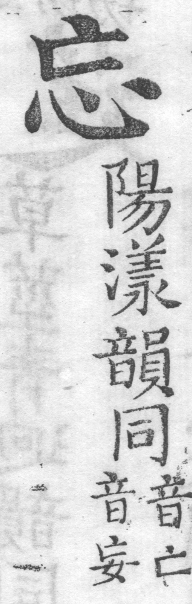 忘
陽漾韻同
音亡
音妄